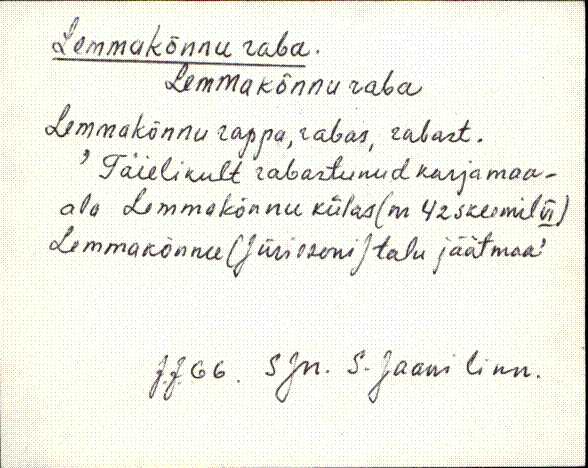 Lemmakõnnu raba.
Lemmakõnnu raba
Lemmakõnnu rappa, rabas, rabast.
' Täielikult rabastunud karjamaa-
ala Lemmakõnnu külas (nr 42 skeemil VI)
Lemmakõnnu (Jürisoni) talu jäätmaa'
J.J. 66. SJn. S-Jaani linn.